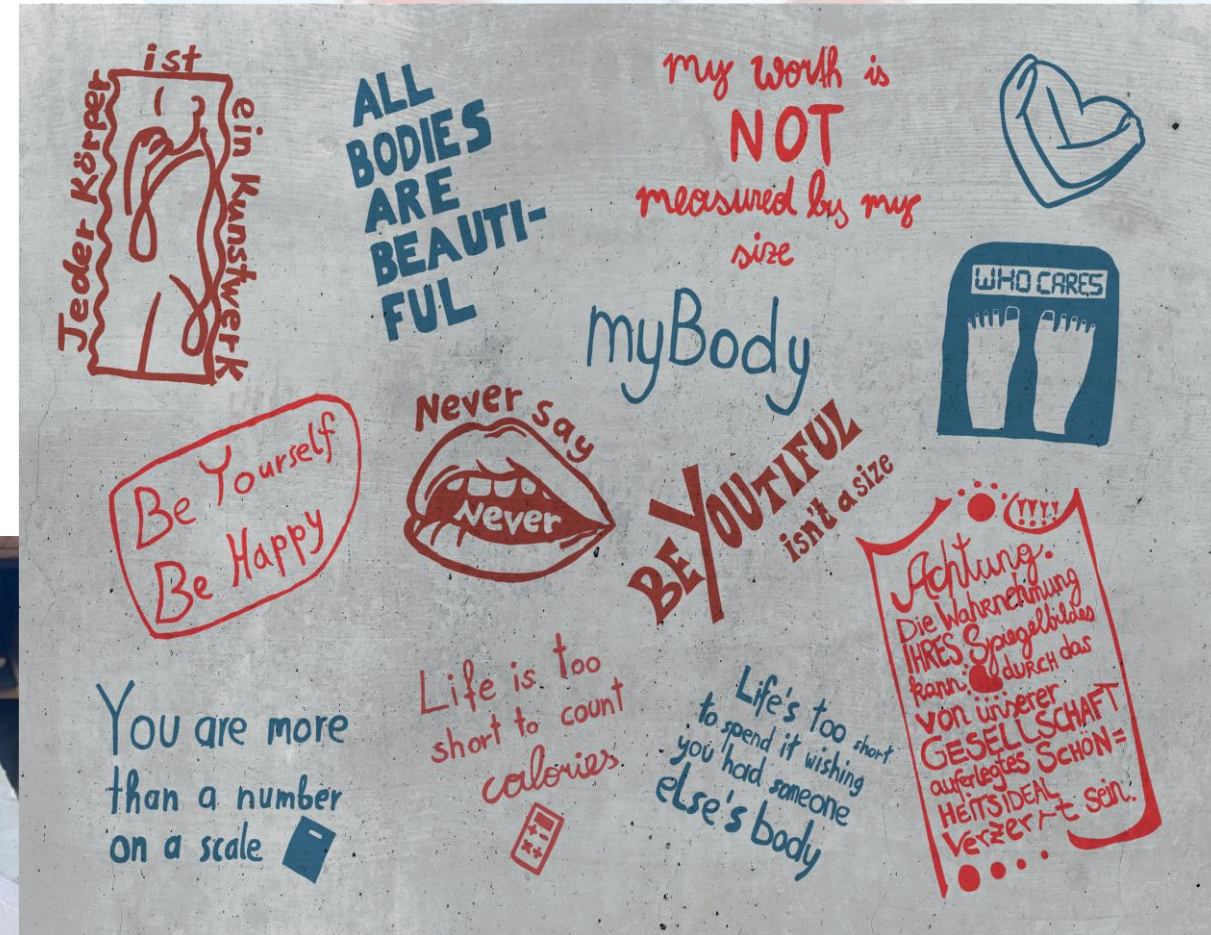 Jeder Körper
ist
ein Kunstwerk
ALL
BODIES
ARE
BEAUTI-
FUL
my worth is
NOT
measured by my
size
myBody
WHO CARES
Be Yourself
Be Happy
Never say
Never
BEYOUTIFUL
isn't a size
Achtung.
Die Wahrnehmung
IHRES Spiegelbildes
kann DURCH das
von unserer
GESELLSCHAFT
auferlegtes SCHÖN=
HEITSIDEAL
verzerrt sein.
You are more
than a number
on a scale
Life is too
short to count
calories
Life's too short
to spend it wishing
you had someone
else's body